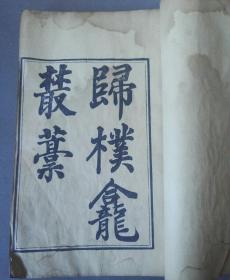 歸樸龕
叢藁